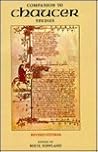 COMPANION TO
chaucer
STUDIES
REVISED EDITION
EDITED BY
BERYL ROWLAND